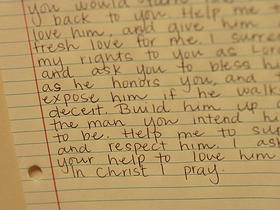 you would
back to you. Help me
love him, and give him
fresh love for me. I
my rights to you as
and ask you to bless
as he honors you, and
expose him if he walks
deceit. Build him up
the man you intend
to be. Help me to
and respect him. I ask
your help to love him
In Christ I pray.